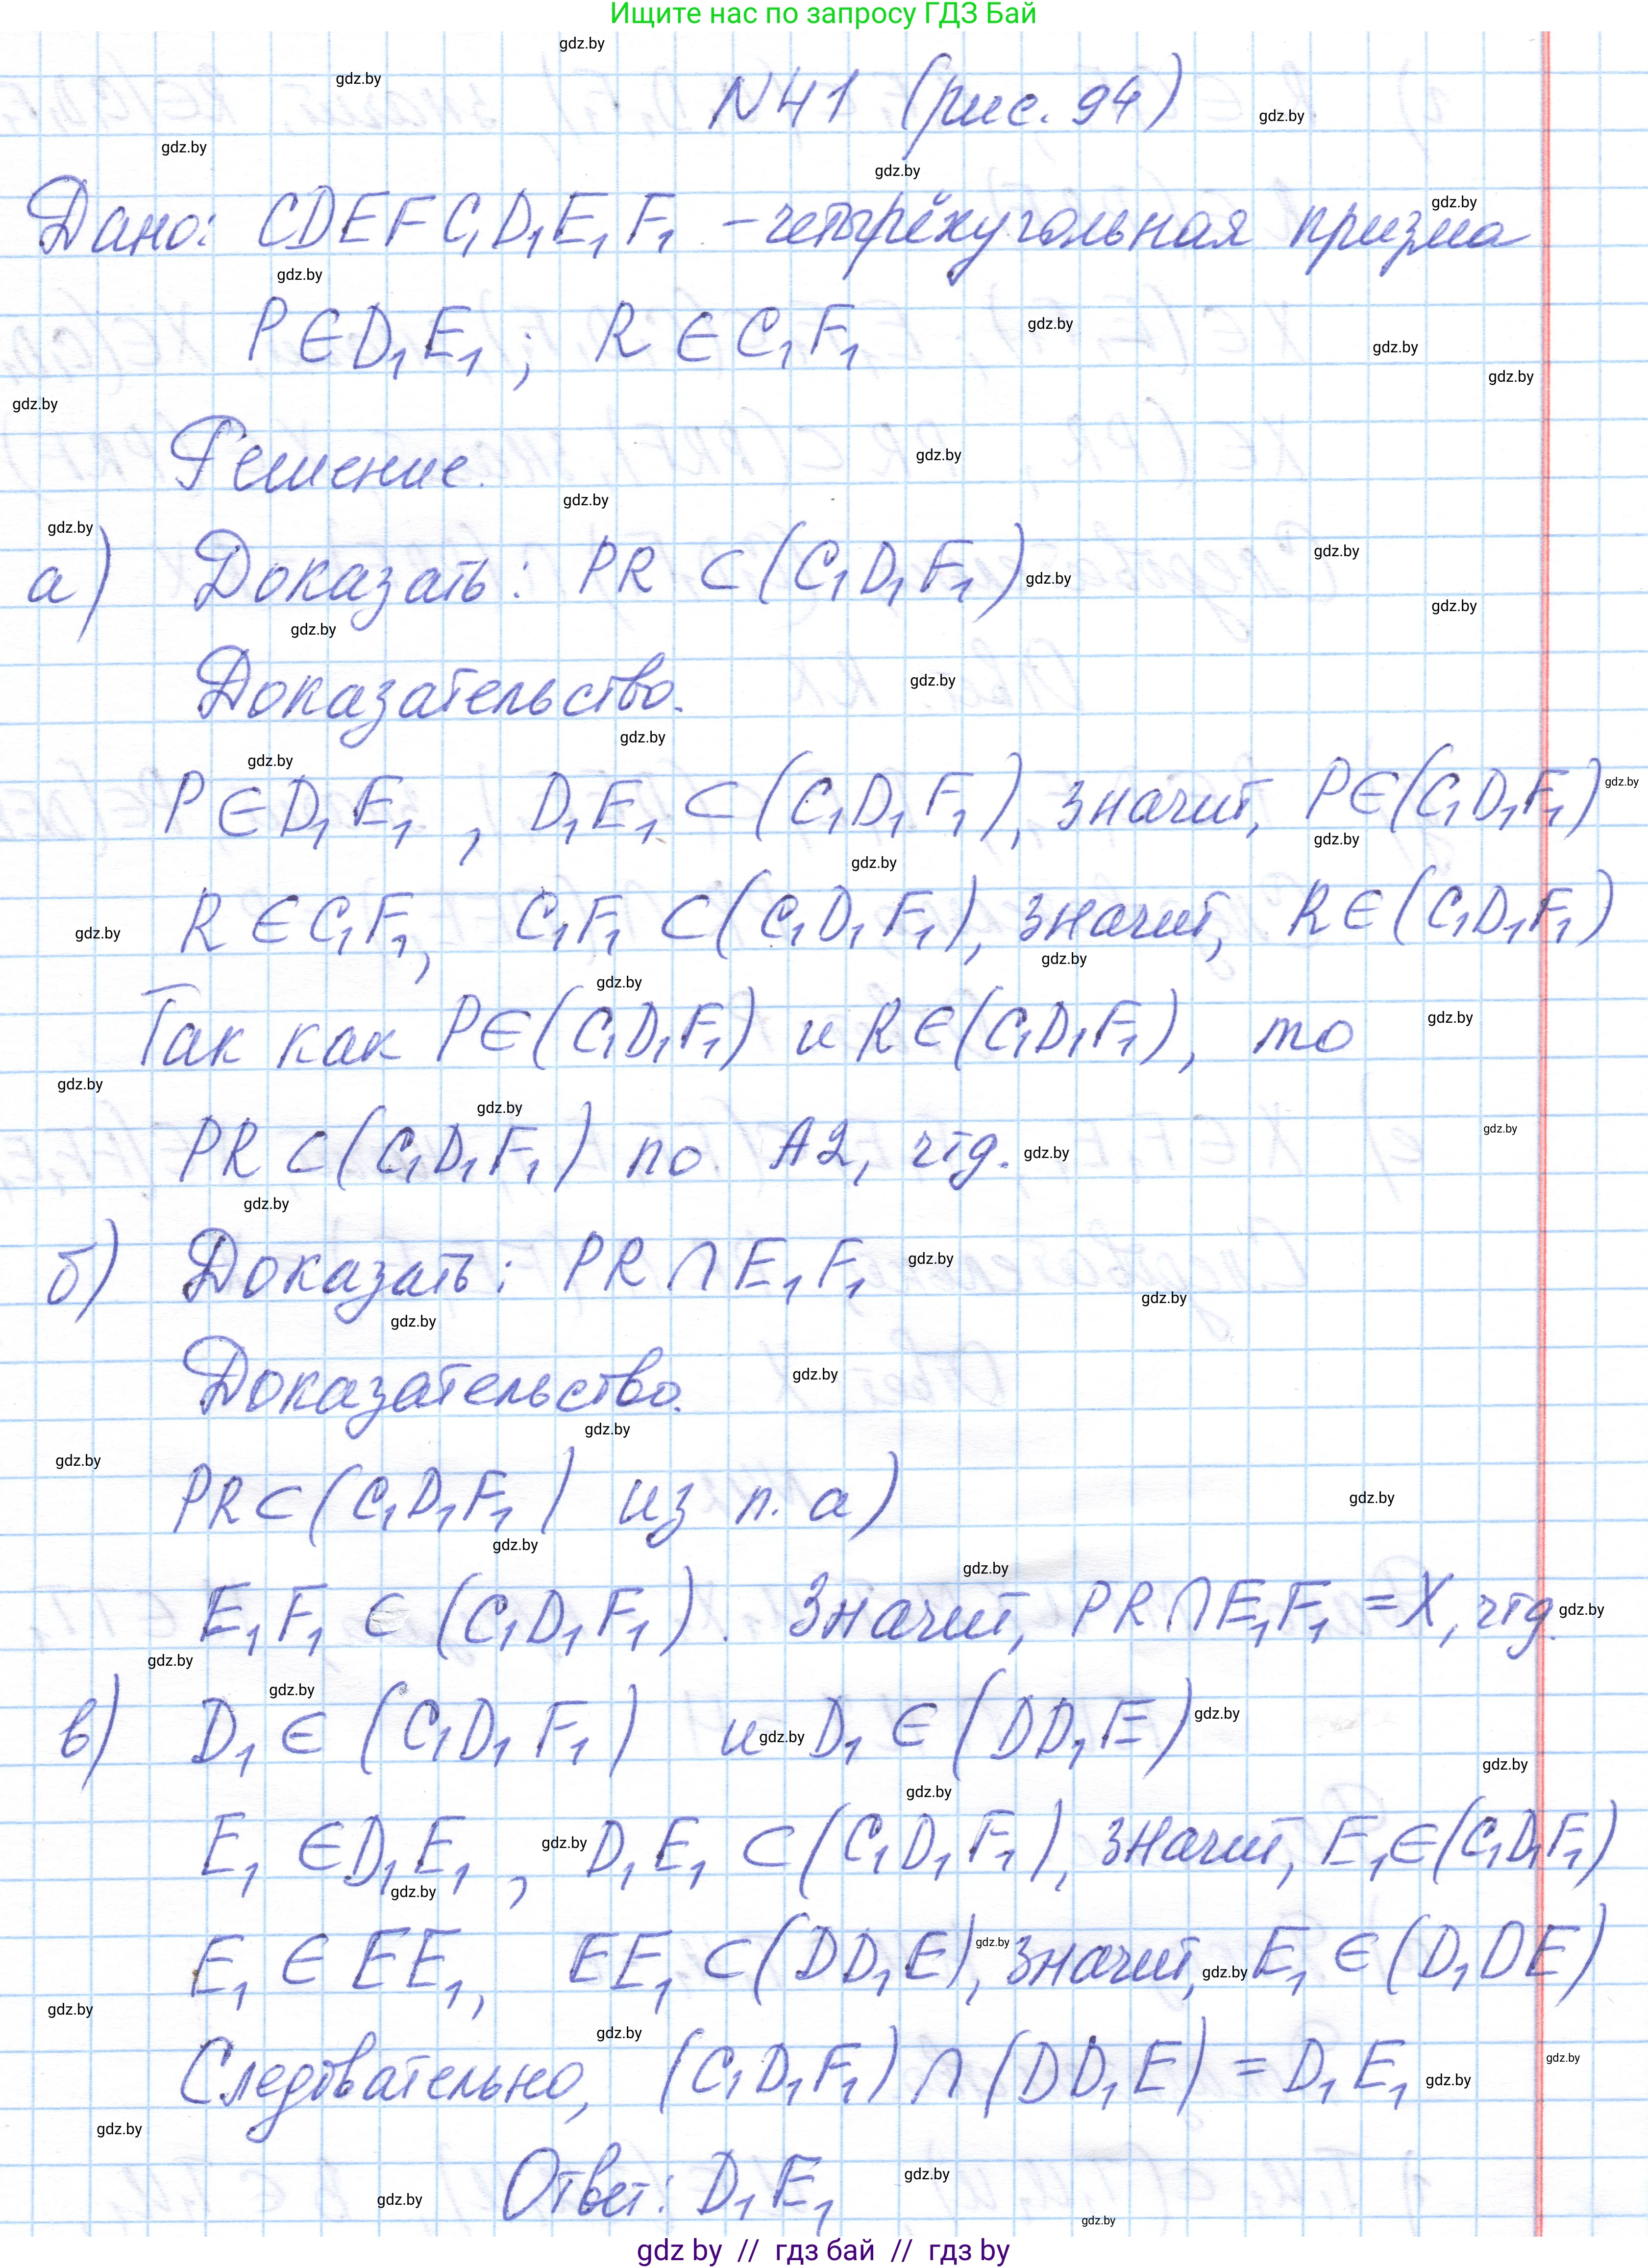 Ищите нас по запросу ГДЗ Бай
N41 (рис. 94)
Дано: CDEFC₁D₁E₁F₁ - четырёхугольная призма
P∈D₁E₁ ; R∈C₁F₁
Решение.
а) Доказать: PR ⊂ (C₁D₁F₁)
Доказательство.
P∈D₁E₁ , D₁E₁ ⊂ (C₁D₁F₁), значит, P∈(C₁D₁F₁)
R∈C₁F₁, C₁F₁ ⊂ (C₁D₁F₁), значит, R∈(C₁D₁F₁)
Так как P∈(C₁D₁F₁) и R∈(C₁D₁F₁), то
PR ⊂ (C₁D₁F₁) по А2, чтд.
б) Доказать: PR ∩ E₁F₁
Доказательство.
PR ⊂ (C₁D₁F₁) из п. а)
E₁F₁ ⊂ (C₁D₁F₁). Значит, PR ∩ E₁F₁ = X, чтд.
в) D₁ ∈ (C₁D₁F₁) и D₁ ∈ (DD₁E)
E₁ ∈ D₁E₁ , D₁E₁ ⊂ (C₁D₁F₁), значит, E₁∈(C₁D₁F₁)
E₁ ∈ EE₁, EE₁ ⊂ (DD₁E), значит, E₁ ∈ (D₁DE)
Следовательно, (C₁D₁F₁) ∩ (DD₁E) = D₁E₁
Ответ: D₁E₁
gdz by // гдз бай // гдз by